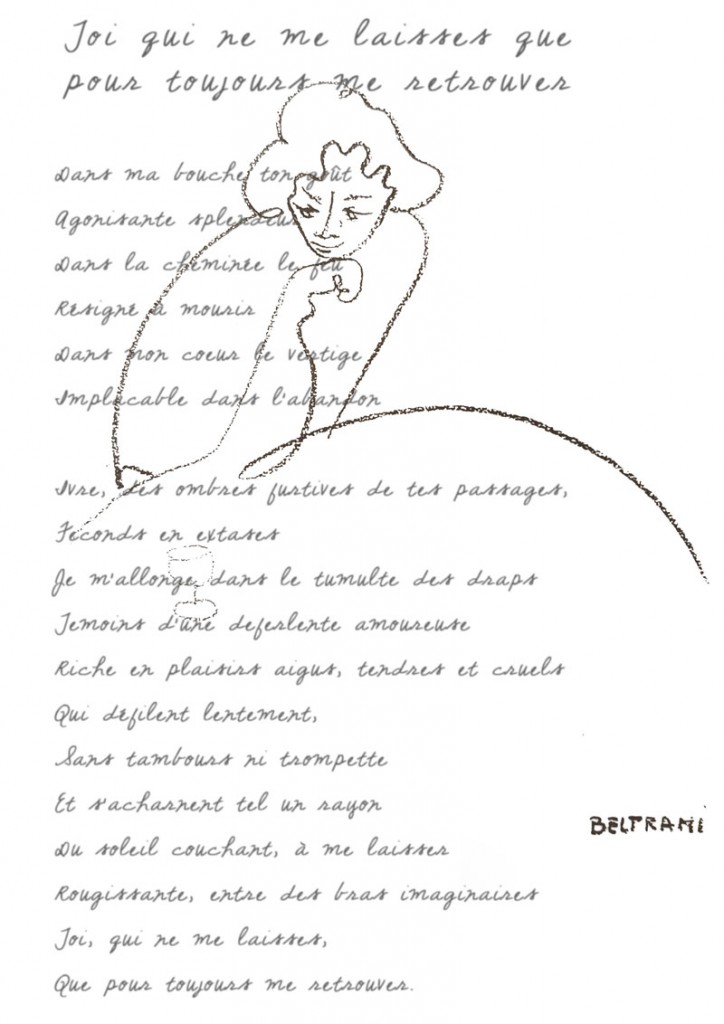 Toi qui ne me laisses que
pour toujours me retrouver
Dans ma bouche ton goût
Agonisante splendeur
Dans la cheminée le feu
Résigné à mourir
Dans mon coeur le vertige
Implacable dans l'abandon
Ivre, des ombres furtives de tes passages,
Féconds en extases
Je m'allonge dans le tumulte des draps
Temoins d'une deferlente amoureuse
Riche en plaisirs aigus, tendres et cruels
Qui défilent lentement,
Sans tambours ni trompette
Et s'acharnent tel un rayon
Du soleil couchant, à me laisser
Rougissante, entre des bras imaginaires
BELTRAMI
Toi, qui ne me laisses,
Que pour toujours me retrouver.